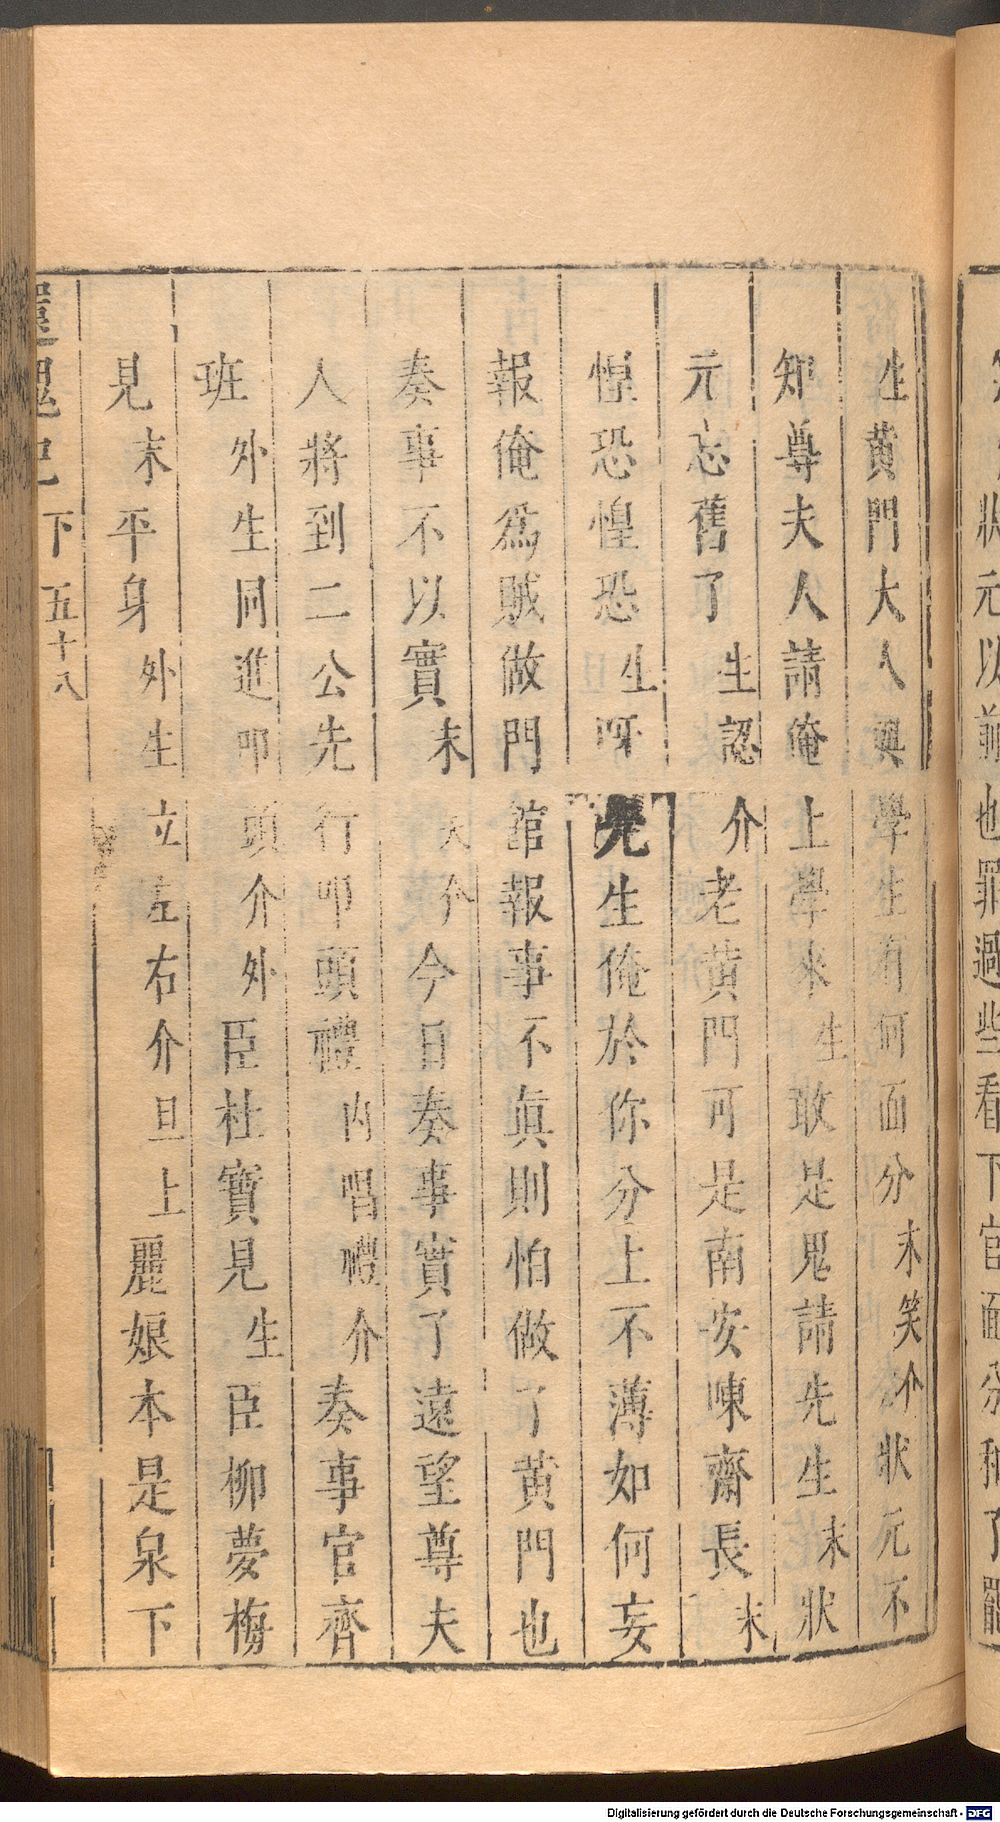 狀元以前也罪過些看下官面分和了罷
生黄門大人與學生有何面分末笑介狀元不
知尊夫人請俺上學來生敢是鬼請先生末狀
元忘舊了生認介老黄門可是南安陳齋長末
惶恐惶恐生呀先生俺於你分上不薄如何妄
報俺爲賊做門館報事不眞則怕做了黄門也
奏事不以實末笑介今日奏事實了遠望尊夫
人將到二公先行叩頭禮内唱禮介奏事官齊
班外生同進叩頭介外臣杜寶見生臣柳夢梅
見末平身外生立左右介旦上麗娘本是泉下
還魂記 下 五十八
Digitalisierung gefördert durch die Deutsche Forschungsgemeinschaft - DFG